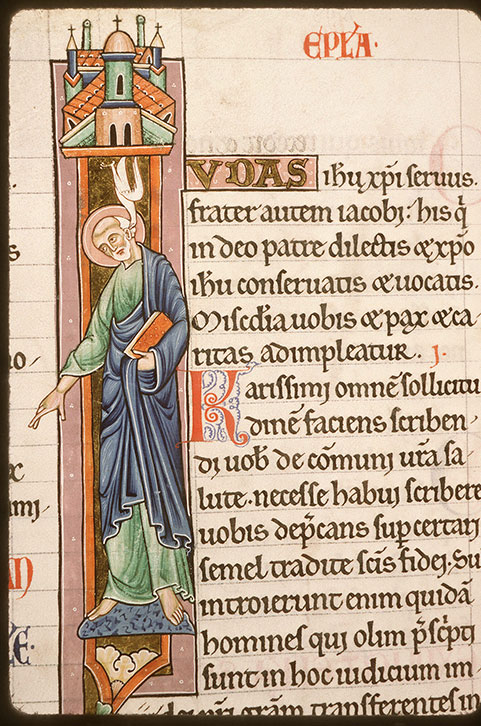 EPLA·
VDAS ihu xpi seruus.
frater autem iacobi: his q̇
in deo patre dilectis & xpo
ihu conseruatis & uocatis.
Miscdia uobis & pax & ca
ritas adimpleatur. j.
Karissimi omnē sollicitu
dinē faciens scriben
di uob de cōmuni urā sa
lute. necesse habui scribere
uobis dep̄cans sup certari
semel tradite sc̄is fidei. Su
introierunt enim quidā
homines qui olim p̄sc̄pti
sunt in hoc iudicium im
grām transferentes in